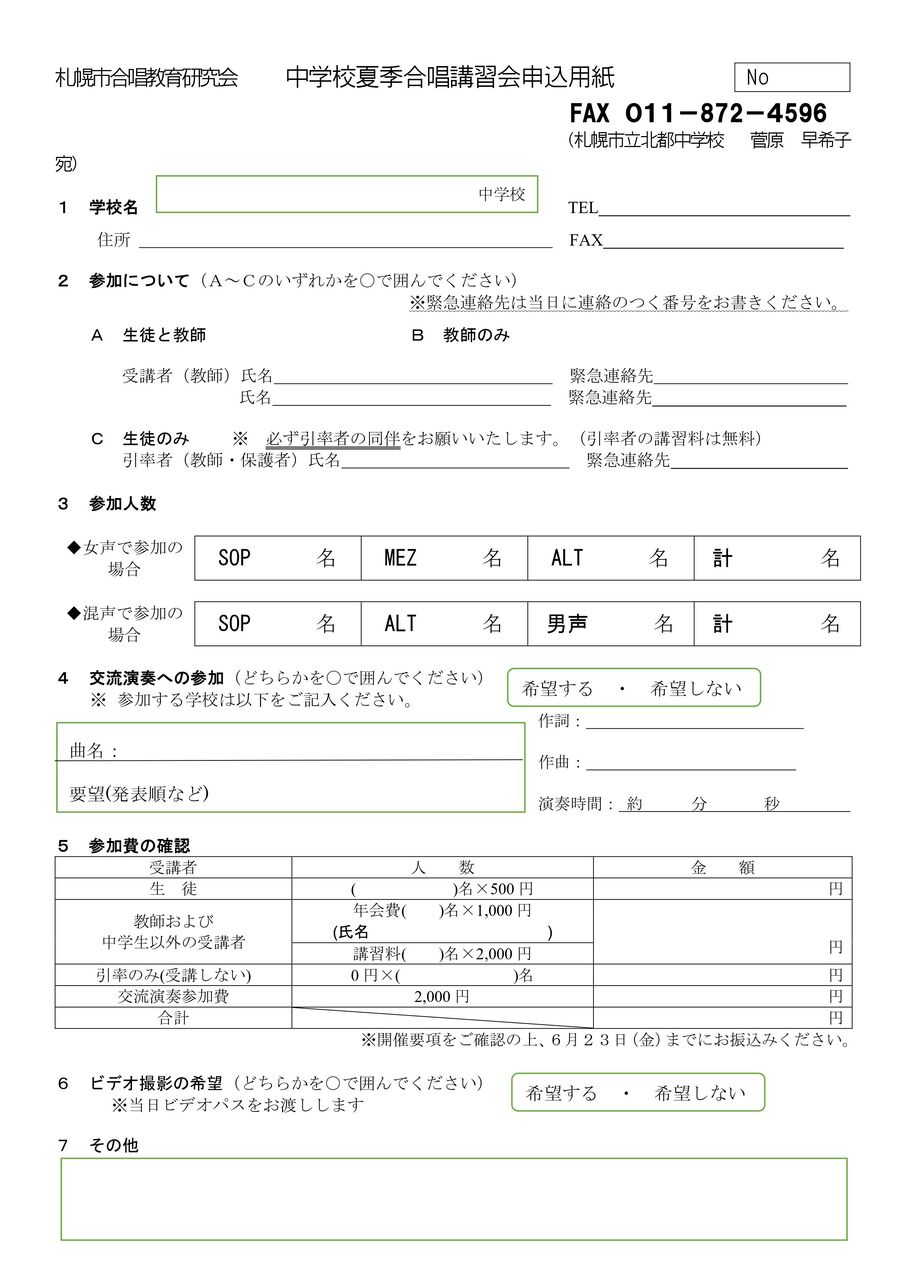 札幌市合唱教育研究会　　中学校夏季合唱講習会申込用紙　　No
FAX 011－872－4596
（札幌市立北都中学校　菅原　早希子
宛）
1　学校名　　中学校　　TEL
住所　　FAX
2　参加について（Ａ～Ｃのいずれかを○で囲んでください）
※緊急連絡先は当日に連絡のつく番号をお書きください。
Ａ　生徒と教師　　Ｂ　教師のみ
受講者（教師）氏名　　緊急連絡先
氏名　　緊急連絡先
Ｃ　生徒のみ　　※　必ず引率者の同伴をお願いいたします。（引率者の講習料は無料）
引率者（教師・保護者）氏名　　緊急連絡先
3　参加人数
◆女声で参加の
場合　　SOP　名　　MEZ　名　　ALT　名　　計　名
◆混声で参加の
場合　　SOP　名　　ALT　名　　男声　名　　計　名
4　交流演奏への参加（どちらかを○で囲んでください）　　希望する　・　希望しない
※ 参加する学校は以下をご記入ください。
作詞：
曲名：
作曲：
要望(発表順など)
演奏時間： 約　　分　　秒
5　参加費の確認
受講者　　人　数　　金　額
生　徒　　(　　)名×500 円　　円
教師および
中学生以外の受講者
年会費(　　)名×1,000 円
(氏名　　)
講習料(　　)名×2,000 円
円
引率のみ(受講しない)　　0 円×(　　)名　　円
交流演奏参加費　　2,000 円　　円
合計　　円
※開催要項をご確認の上、６月２３日（金）までにお振込みください。
6　ビデオ撮影の希望（どちらかを○で囲んでください）　　希望する　・　希望しない
※当日ビデオパスをお渡しします
7　その他